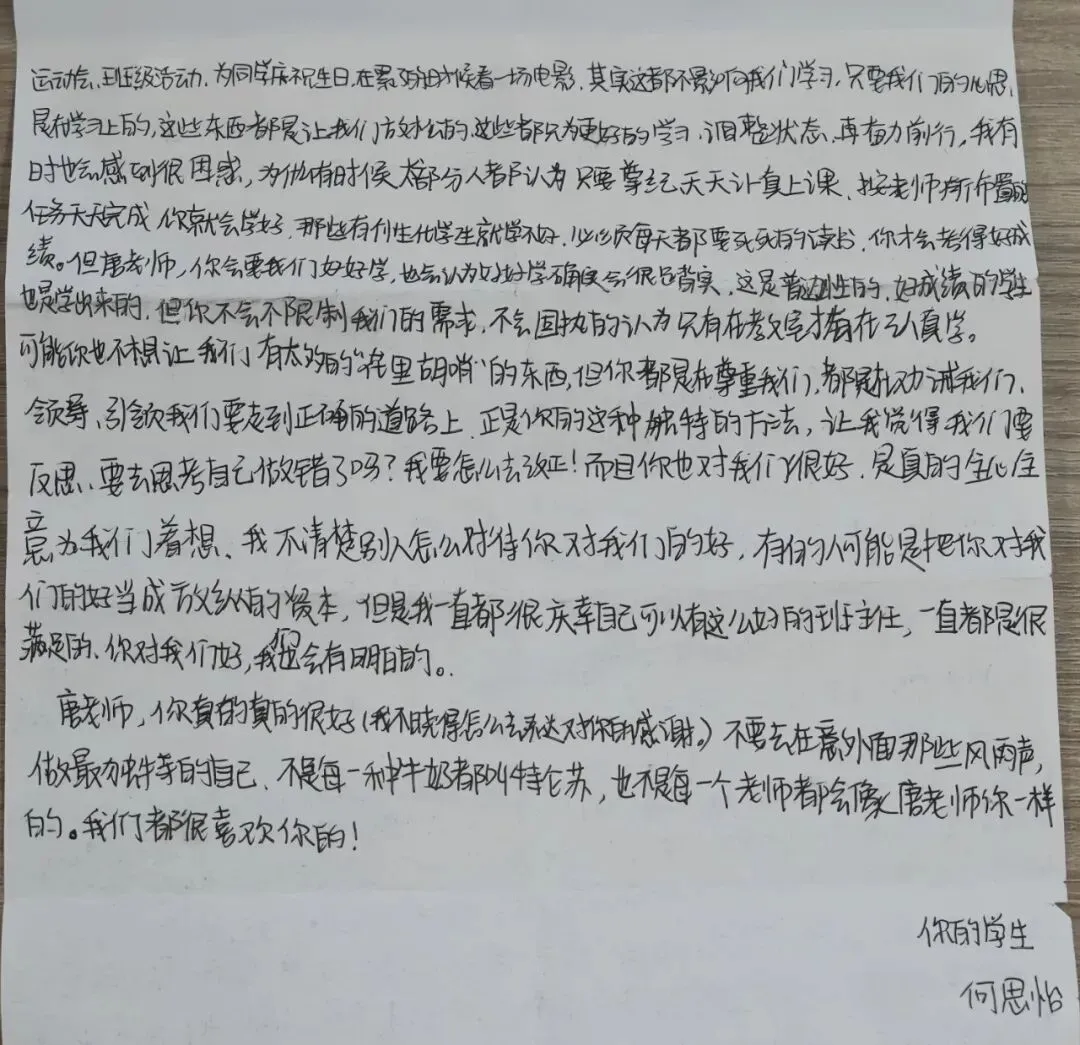 运动会、班级活动、为同学庆祝生日,在累的时候看一场电影,其实这都不影响我们学习,只要我们的心思,
是在学习上的,这些东西都是让我们放松的,这些都只为更好的学习,调整状态,再奋力前行,我有
时也会感到很困惑,为什么有时候大部分人都认为只要尊纪天天认真上课、按老师所布置的
任务天天完成 你就会学好,那些有个性化学生就学不好,必须每天都要死死的读书,你才会考得好成
绩。但唐老师,你会要我们好好学,也会认为好好学确实会很踏实,这是普遍性的,好成绩的学生
也是学出来的,但你不会不限制我们的需求,不会固执的认为只有在教室才有在认真学。
可能你也不想让我们有太多的“花里胡哨”的东西,但你都是在尊重我们,都是在劝诫我们、
领导、引领我们要走到正确的道路上,正是你的这种独特的方法,让我觉得我们要
反思、要去思考自己做错了吗?我要怎么去改正!而且你也对我们很好,是真的全心全
意为我们着想、我不清楚别人怎么对待你对我们的好,有的人可能是把你对我
们的好当成放纵的资本,但是我一直都很庆幸自己可以有这么好的班主任,一直都是很
满足的、你对我们好,我们也会有明白的。
唐老师,你真的真的很好(我不晓得怎么去表达对你的感谢。)不要去在意外面那些风雨声,
做最独特的自己,不是每一种牛奶都叫特仑苏,也不是每一个老师都会像唐老师你一样
的。我们都很喜欢你的!
你的学生
何思怡